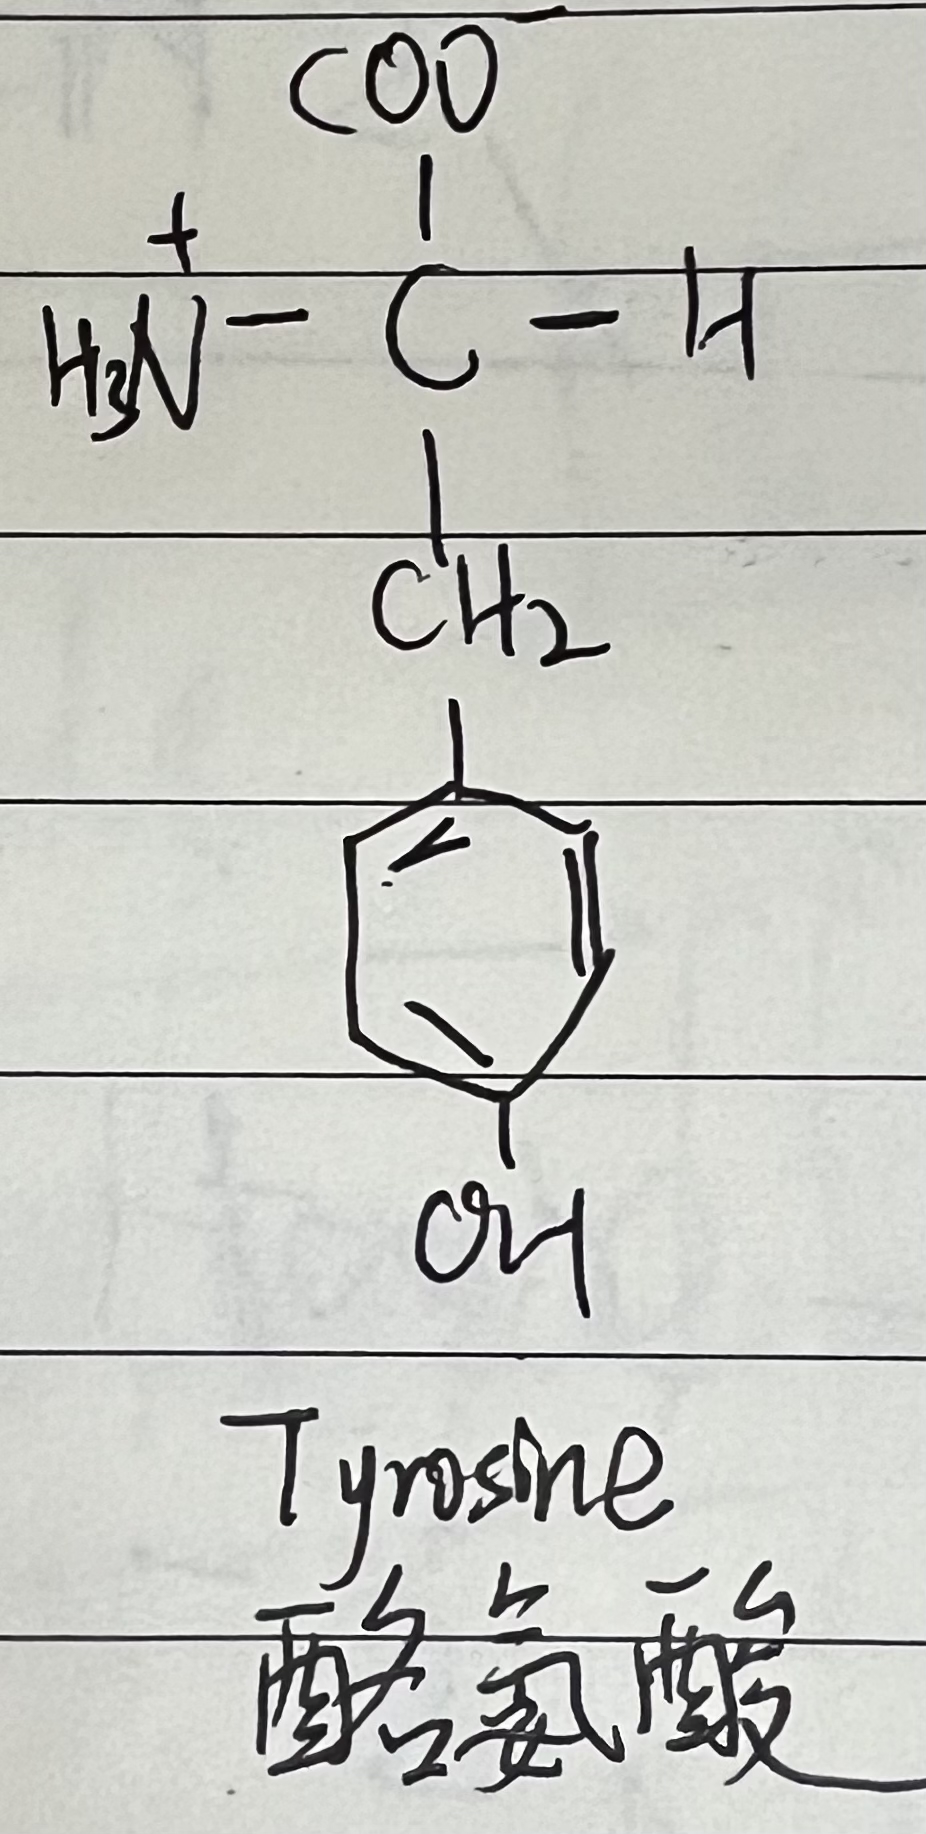 COO⁻
H₃N⁺ - C - H
CH₂
OH
Tyrosine
酪氨酸